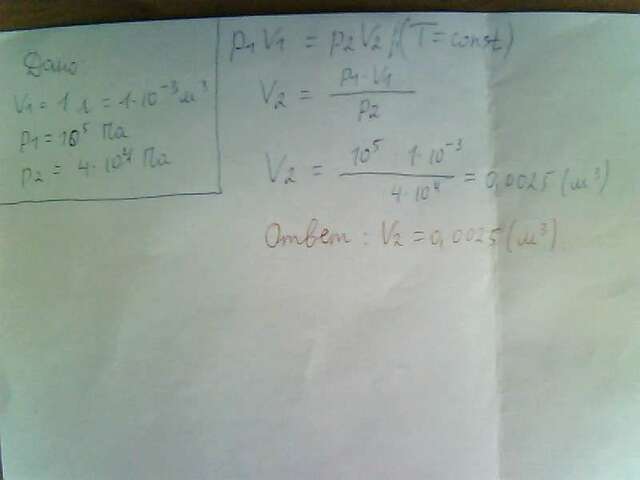 Дано
V1 = 1 л = 1·10⁻³ м³
p1 = 10⁵ Па
p2 = 4·10⁴ Па
p1 V1 = p2 V2; (T = const)
V2 = p1·V1 / p2
V2 = 10⁵ 1·10⁻³ / 4·10⁴ = 0,0025 (м³)
Ответ: V2 = 0,0025 (м³)